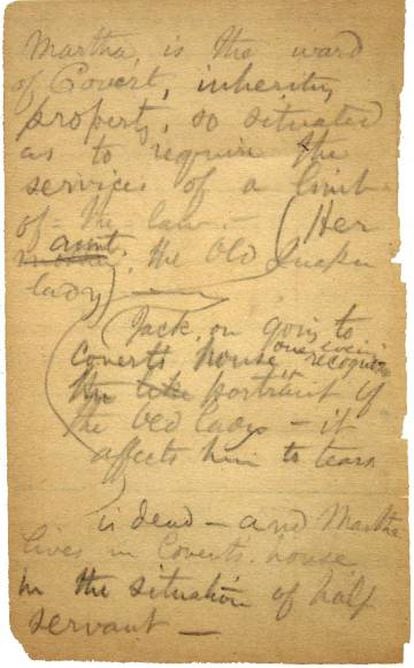 Martha, is the ward
of Covert, inheriting
property, so situated
as to require the
services of a limb
of the law. — (Her
aunt
mother, the old Quaker
lady)
Jack, on going to
Covert's house one evening recognizes
the like portrait of
the old lady — it
affects him to tears
is dead — and Martha
lives in Covert's house
in the situation of half
servant —